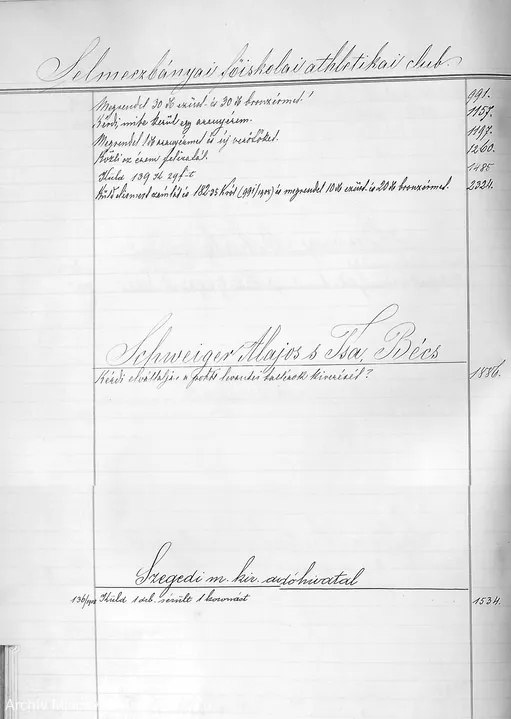 Selmeczbányai főiskolai athletikai club.
Megrendel 30 db ezüst- és 30 db bronzérmet! 991.
Kérdi, mibe kerül egy aranyérem. 1157.
Megrendel 1 db aranyérmet és új verőtőket. 1197.
Közli az érem feliratát. 1260.
Küld 139 K 29 f-t 1485
Küld elismert számlát és 182.35 K-ról (991/902) és megrendel 10 db ezüst és 20 db bronzérmet. 2324.
Schweiger Alajos s Tsa, Bécs
Kérdi elvállalják-e levantei tallérok kiverését? 1886.
Szegedi m. kir. adóhivatal
136/902 Küld 1 drb. sérült 1 koronást 1534.